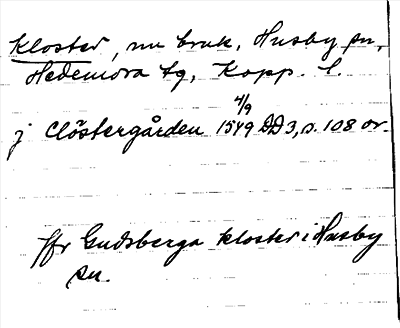 Kloster, nu bruk, Husby sn,
Hedemora tg, Kopp. l.
4/9
j Clöstergården 1549 DD3, s. 108 or.
Jfr Gudsberga kloster i Husby
sn.